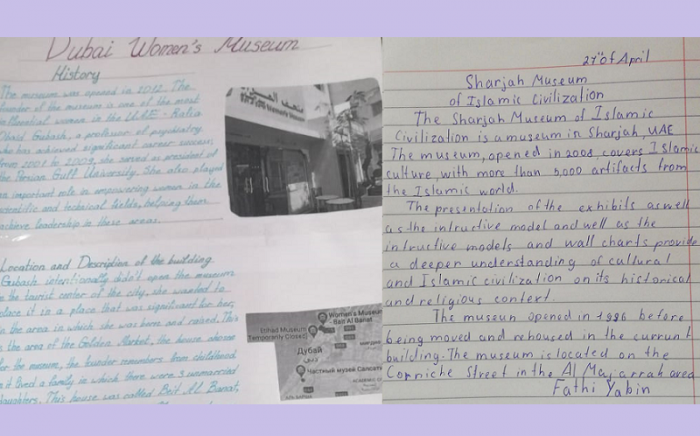 Dubai Women's Museum
History
The museum was opened in 2012. The
founder of the museum is one of the most
influential women in the UAE - Rafia
Obaid Gubash, a professor of psychiatry
who has achieved significant career success,
from 2001 to 2009, she served as president of
the Persian Gulf University. She also played
an important role in empowering women in the
scientific and technical fields, helping them
achieve leadership in these areas.
Location and Description of the building
Gubash intentionally didn't open the museum
in the tourist center of the city, she wanted to
place it in a place that was significant for her,
in the area in which she was born and raised. This
is the area of the Golden Market, the house
for the museum, the founder remembers from childhood
in it lived a family in which there were 3 unmarried
daughters. This house was called Beit Al Banat,
Women's Museum
- Bait Al Banat
Etihad Museum
Temporarily Closed
Дубай
Частный музей
27th of April
Sharjah Museum
of Islamic Civilization
The Sharjah Museum of Islamic
Civilization is a museum in Sharjah, UAE
The museum, opened in 2008, covers Islamic
culture, with more than 5,000 artifacts from
the Islamic world.
The presentation of the exhibits as well
as the intructive model and well as the
intructive models and wall charts provide
a deeper understanding of cultural
and Islamic civilization on its historical
and religious context.
The museun opened in 1996 before
being moved and rehoused in the currunt
building. The museum is located on the
Corniche Street in the Al Majarrah area
Fathi Yabin